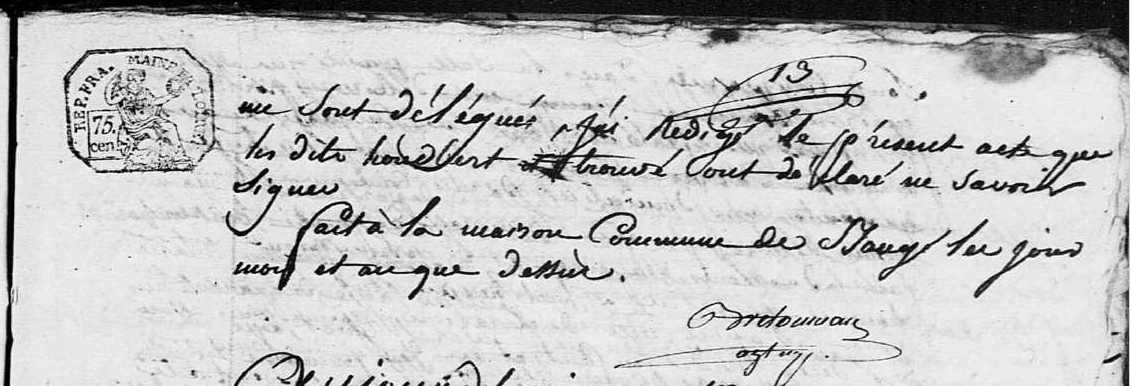 REP. FRA. MAINE ET LOIRE
75.
cen
13
me sont délégués, j'ai Redigé le présent acte que
les dits houdbert et trouvé ont déclaré ne savoir
signer
fait à la maison Commune de Baugé les jour
mois et an que dessus.